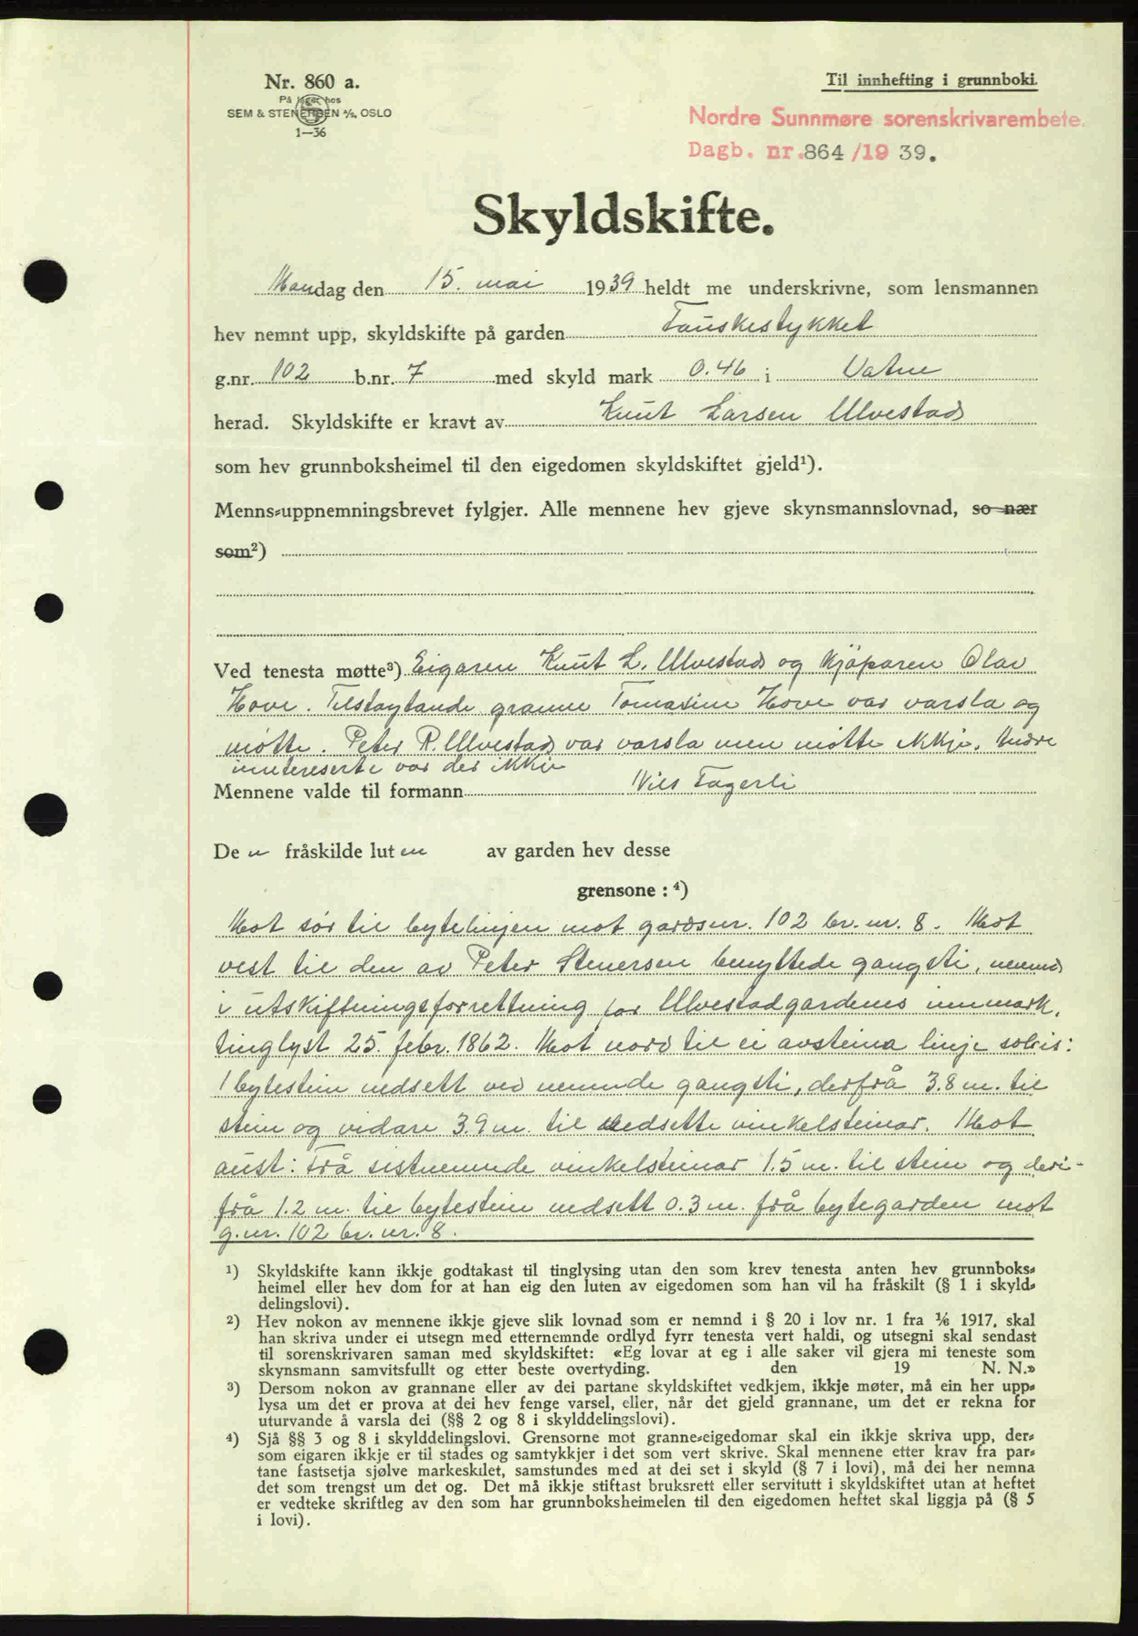 Nr. 860 a.
På lager hos
SEM & STENERSEN A/S, OSLO
1—36
Til innhefting i grunnboki.
Nordre Sunnmøre sorenskrivarembete.
Dagb. nr. 864 /19 39.
Skyldskifte.
Mandag den 15. mai 1939 heldt me underskrivne, som lensmannen
hev nemnt upp, skyldskifte på garden Tauskestykket
g.nr. 102 b.nr. 7 med skyld mark 0.46 i Vatne
herad. Skyldskifte er kravt av Knut Larsen Ulvestad
som hev grunnboksheimel til den eigedomen skyldskiftet gjeld¹).
Menns-uppnemningsbrevet fylgjer. Alle mennene hev gjeve skynsmannslovnad, so nær
som²)
Ved tenesta møtte³) Eigaren Knut L. Ulvestad og kjøparen Olav
Hove. Tilstøytande granne Tomasine Hove var varsla og
møtte. Peter R. Ulvestad var varsla men møtte ikkje. Andre
intereserte var der ikkje
Mennene valde til formann Nils Fagerli
De n fråskilde luten av garden hev desse
grensone : ⁴)
Mot sør til bytelinjen mot gardsnr. 102 br. nr. 8. Mot
vest til den av Peter Stenersen benyttede gangsti, nemnd
i utskiftningsforrettning for Ulvestadgardenes innmark,
tinglyst 25. febr. 1862. Mot nord til ei avsteina linje soleis:
1 bytestein nedsett ved nemnde gangsti, derfrå 3.8 m. til
stein og vidare 3.9 m. til nedsette vinkelsteinar. Mot
aust: Frå sistnemnde vinkelsteinar 1.5 m. til stein og deri-
frå 1.2 m. til bytestein nedsett 0.3 m. frå bytegarden mot
g. nr. 102 br. nr. 8.
¹) Skyldskifte kann ikkje godtakast til tinglysing utan den som krev tenesta anten hev grunnboks-
heimel eller hev dom for at han eig den luten av eigedomen som han vil ha fråskilt (§ 1 i skyld-
delingslovi).
²) Hev nokon av mennene ikkje gjeve slik lovnad som er nemnd i § 20 i lov nr. 1 fra 1/6 1917, skal
han skriva under ei utsegn med etternemnde ordlyd fyrr tenesta vert haldi, og utsegni skal sendast
til sorenskrivaren saman med skyldskiftet: «Eg lovar at eg i alle saker vil gjera mi teneste som
skynsmann samvitsfullt og etter beste overtyding. den 19 N. N.»
³) Dersom nokon av grannane eller av dei partane skyldskiftet vedkjem, ikkje møter, må ein her upp-
lysa um det er prova at dei hev fenge varsel, eller, når det gjeld grannane, um det er rekna for
uturvande å varsla dei (§§ 2 og 8 i skylddelingslovi).
⁴) Sjå §§ 3 og 8 i skylddelingslovi. Grensorne mot granne-eigedomar skal ein ikkje skriva upp, der-
som eigaren ikkje er til stades og samtykkjer i det som vert skrive. Skal mennene etter krav fra par-
tane fastsetja sjølve merkeskilet, samstundes med at dei set i skyld (§ 7 i lovi), må dei her nemna
det som trengst um det og. Det må ikkje stiftast bruksrett eller servitutt i skyldskiftet utan at heftet
er vedteke skriftleg av den som har grunnboksheimelen til den eigedomen heftet skal liggja på (§ 5
i lovi).